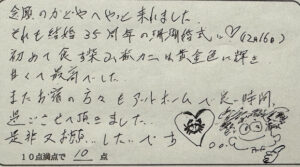 念願のかどやへやっと来れました。
それも結婚35周年の珊瑚婚式に♡(12月16日)
初めて食す 私には黄金色に輝き
甘くて最高でした。
またお宿の方々もアットホームで良い時間、
過ごさせて頂きました。
是非又お願いしたいです
10点満点で 10 点